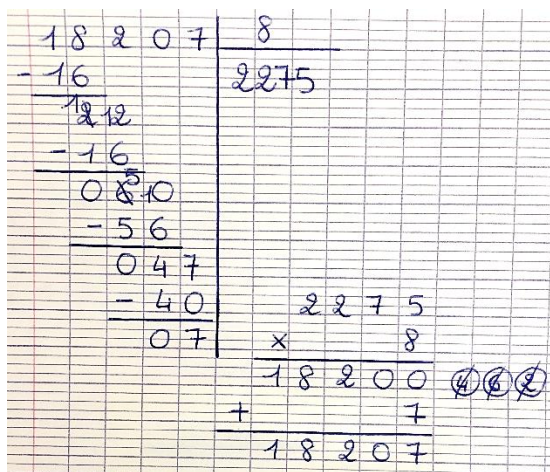 18207 8
- 16 2275
1212
- 16
0 6510
- 56
047
- 40
07
2275
x 8
18200 4 6 2
+ 7
18207